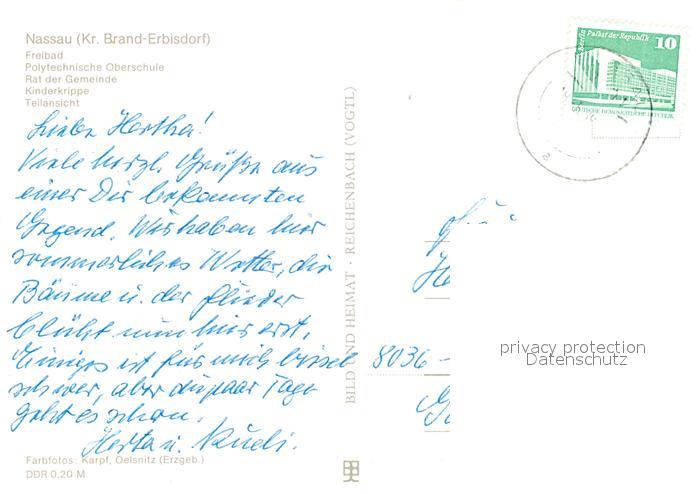 Nassau (Kr. Brand-Erbisdorf)
Freibad
Polytechnische Oberschule
Rat der Gemeinde
Kinderkrippe
Teilansicht
Liebe Hertha!
Viele herzl. Grüße aus
einer Dir bekannten
Gegend. Wir haben hier
sommerliches Wetter, die
Bäume u. der Flieder
blüht nun hier erst.
Einiges ist für mich bissel
schwer, aber die paar Tage
geht es schon.
Herta u. Rudi.
Farbfotos: Karpf, Oelsnitz (Erzgeb.)
DDR 0,20 M
BILD UND HEIMAT · REICHENBACH (VOGTL)
Berlin Palast der Republik
10
DEUTSCHE DEMOKRATISCHE REPUBLIK
He
8036 -
privacy protection
Datenschutz